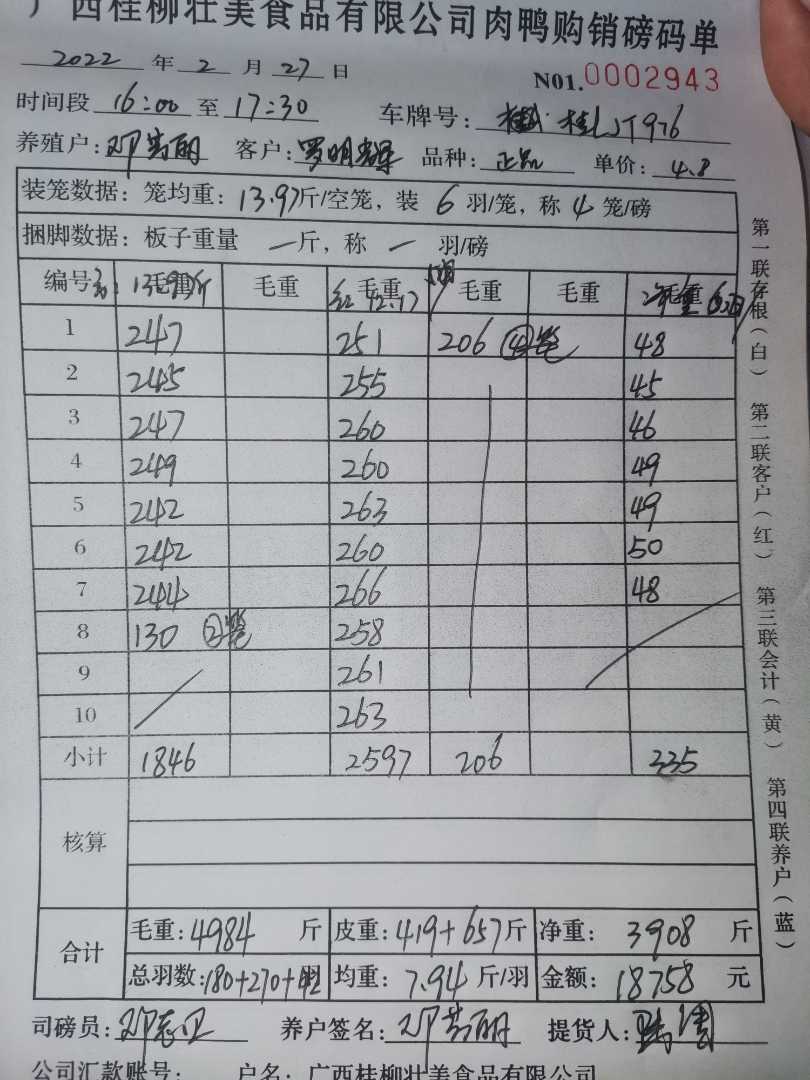 广西桂柳壮美食品有限公司肉鸭购销磅码单
2022 年 2 月 27 日 N01.0002943
时间段 16:00 至 17:30 车牌号: 桂JT976
养殖户: 邓芳丽 客户: 罗明 品种: 正品 单价: 4.8
装笼数据: 笼均重: 13.97斤/空笼, 装 6 羽/笼, 称 4 笼/磅
捆脚数据: 板子重量 一斤, 称 一 羽/磅
编号 毛重 毛重 红 12.17 毛重 毛重 毛重 毛重
1 247 251 206 ④笼 48
2 245 255 45
3 247 260 46
4 249 260 49
5 242 263 49
6 242 260 50
7 244 266 48
8 130 ②笼 258
9 261
10 263
小计 1846 2597 206 335
核算
合计
毛重: 4984 斤 皮重: 419+657斤 净重: 3908 斤
总羽数: 180+270+42羽 均重: 7.94 斤/羽 金额: 18758 元
司磅员: 邓 养户签名: 邓芳丽 提货人:
公司汇款账号: 户名: 广西桂柳壮美食品有限公司
第一联存根(白) 第二联客户(红) 第三联会计(黄) 第四联养户(蓝)